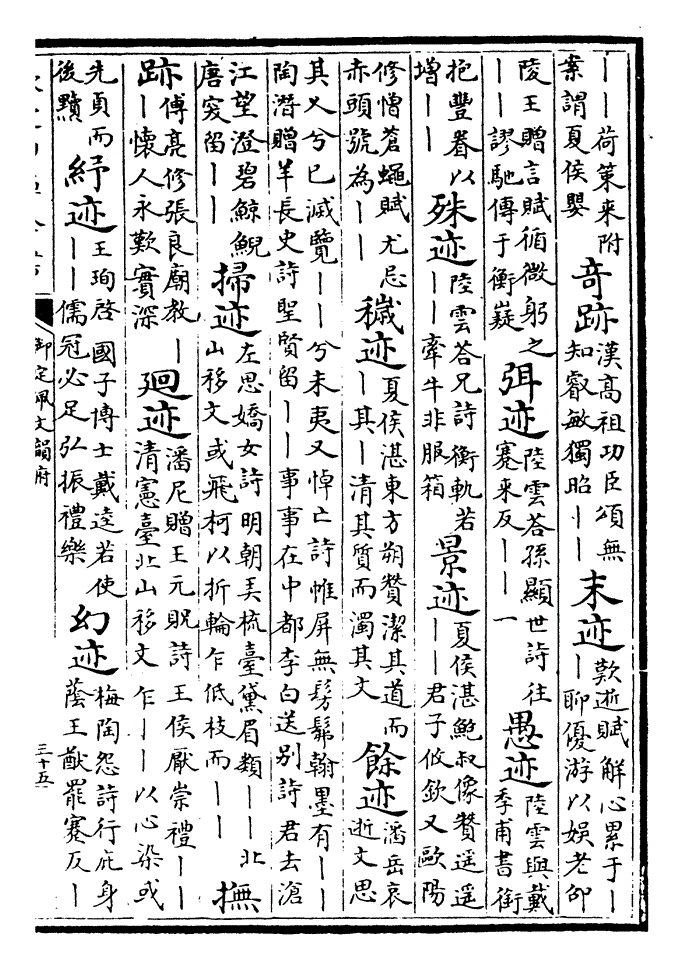 ｜｜荷策来附
案謂夏侯嬰
奇跡
漢髙祖功臣頌無
知睿敏獨昭｜｜
末迹
歎逝賦解心累于｜
｜聊優游以娱老卲
陵王贈言賦循微躬之
｜｜謬馳傳于衡嶷
弭迹
陸雲答孫顯世詩往
蹇来反｜｜｜一
愚迹
陸雲與戴
季甫書衡
抱豐眷以
增｜｜
殊迹
陸雲答兄詩衡軌若
｜｜牽牛非服箱
景迹
夏侯湛鮑叔像贊遥遥
｜｜君子攸欽又歐陽
修憎蒼蠅賦尤忌
赤頭號為｜｜
穢迹
夏侯湛東方朔贊潔其道而
｜其｜清其質而濁其文
餘迹
潘岳哀
逝文思
其又兮已滅覽｜｜兮未夷又悼亡詩帷屏無髣髴翰墨有｜｜
陶潛贈羊長史詩聖賢留｜｜事事在中都李白送别詩君去滄
江望澄碧鯨鯢
唐突留｜｜
掃迹
左思嬌女詩明朝美梳臺黛眉類｜｜北
山移文或飛柯以折輪乍低枝而｜｜
撫
跡
傅亮修張良廟教｜
｜懷人永歎實深
廻迹
潘尼贈王元貺詩王侯厭崇禮｜｜
清憲臺北山移文乍｜｜以心染或
先貞而
後黷
紓迹
王珣啓國子博士戴逵若使
｜｜儒冠必足弘振禮樂
幻迹
梅陶怨詩行庇身
蔭王猷罷蹇反｜
御定佩文韻府
三十五